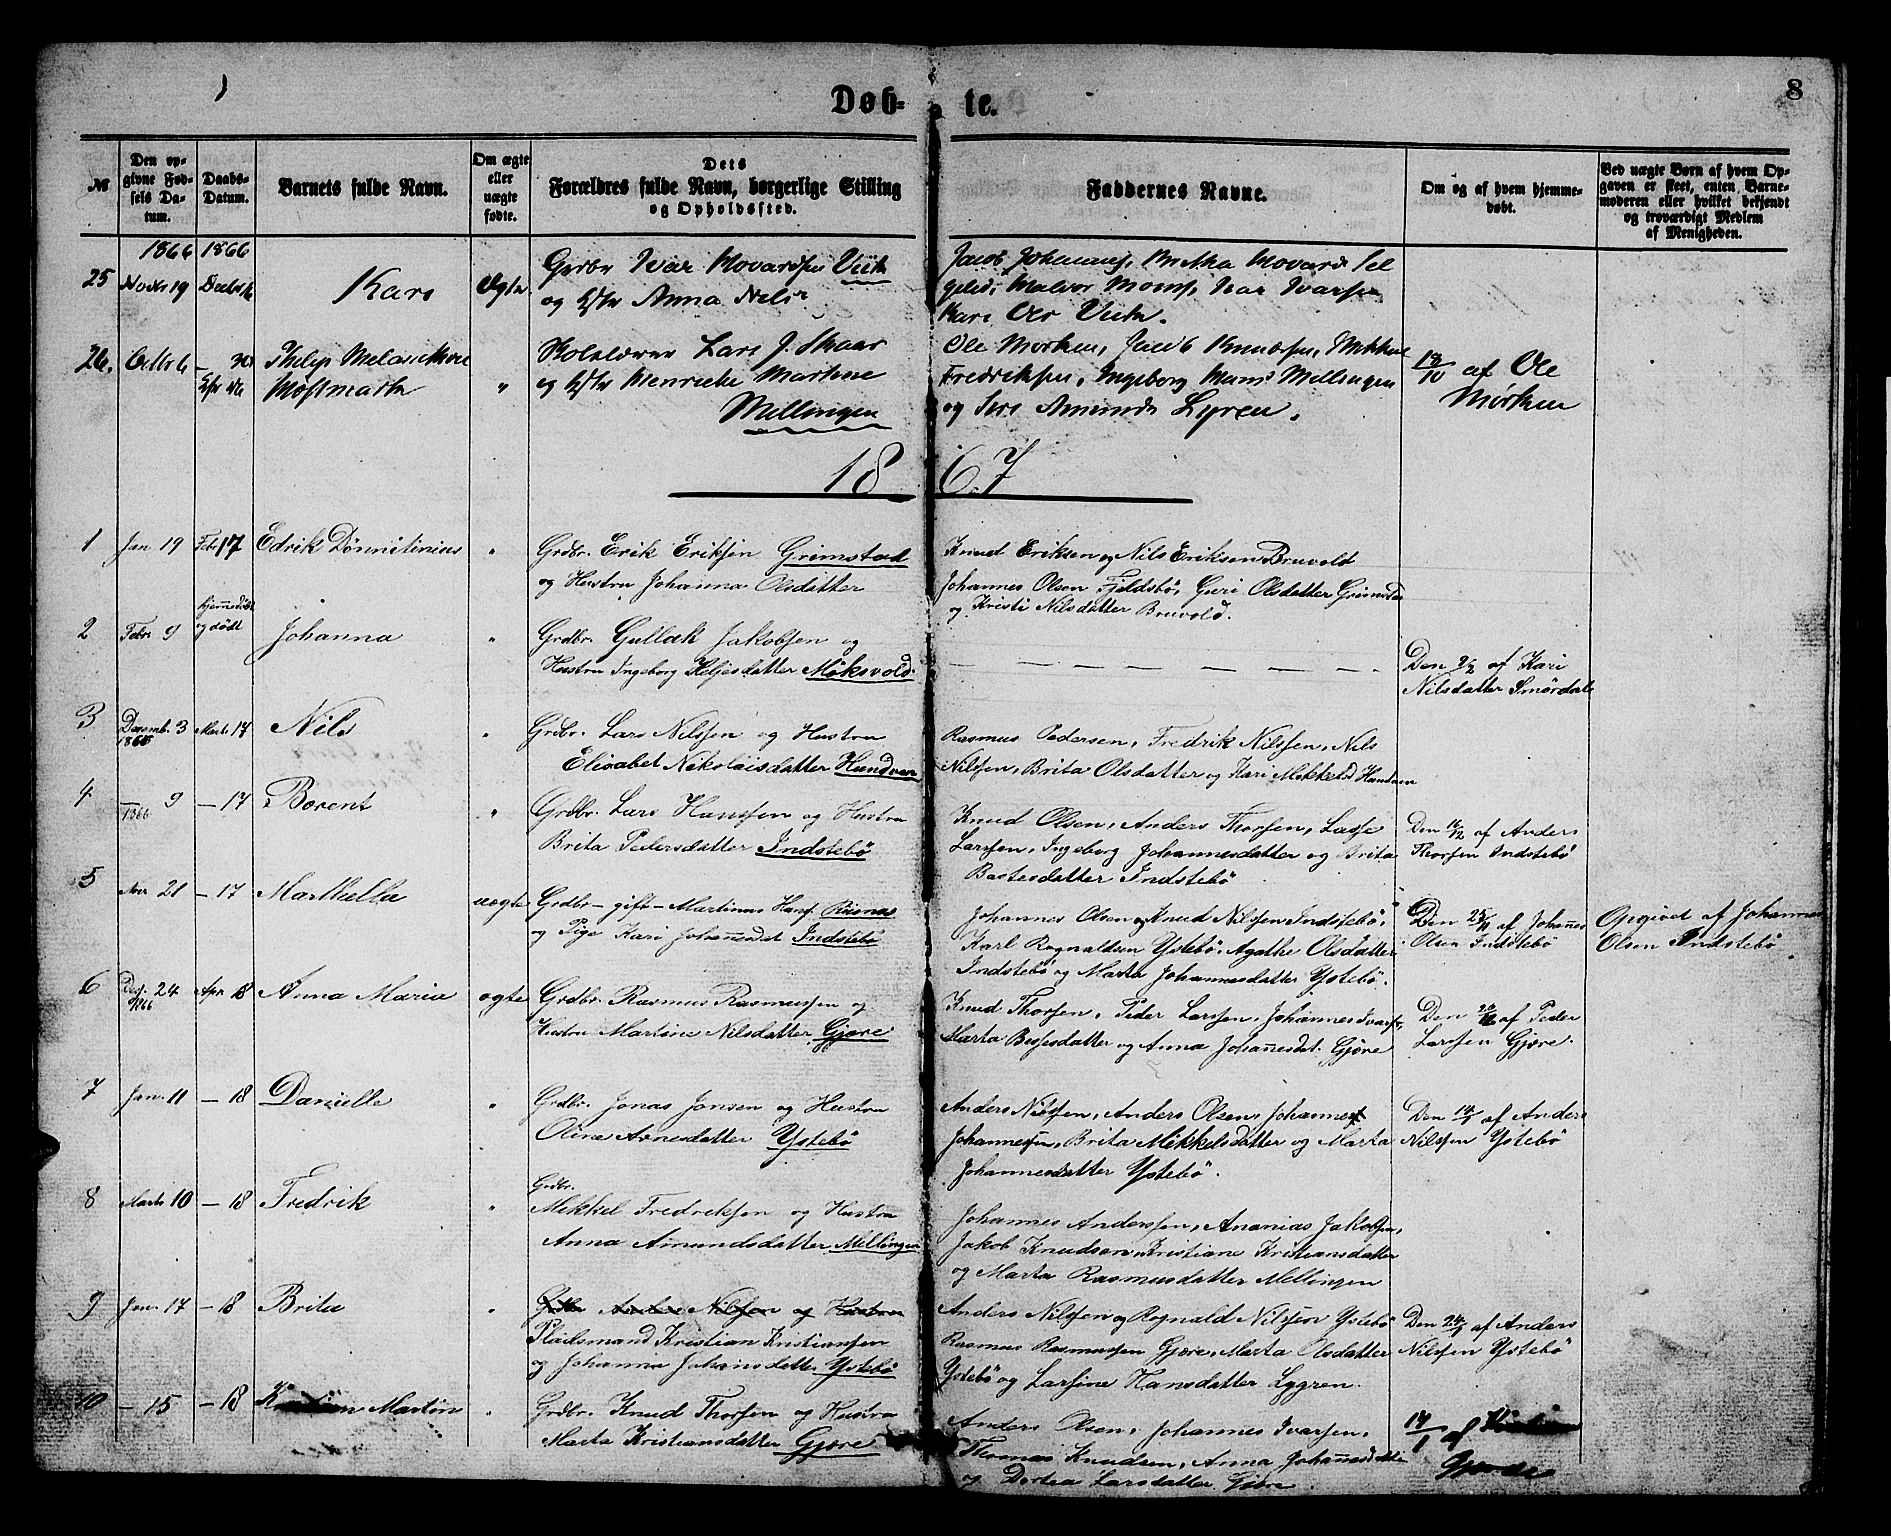 8
Døbte.
№
Den opgivne Fødsels Datum.
Daabs-Datum.
Barnets fulde Navn.
Om ægte eller uægte fødte.
Dets Forældres fulde Navn, borgerlige Stilling og Opholdssted.
Faddernes Navne.
Om og af hvem hjemmedøbt.
Ved uægte Børn af hvem Opgaven er skeet, enten Barnemoderen eller hvilket bekjendt og troværdigt Medlem af Menigheden.
1866 1866
25 Novbr 19 Kari Ægte
Grdbr Ivar Hovardsen Viik
og Hstr Anna Nels
Jacob Johannes, Britha Hovards
Ivar Ivarsen
Kari Viik.
26. Octbr 6
Philip Melancthon
Hofsmarth
Lars J. Skaar
og Hstr Henrikke Marthine
Mellingen
Ole Mørken, Jacob Knudsen, Mikkel
Fredriksen, Ingeborg Hans Mellingen
og Amunds Lygren.
18/10 af Ole
Mørken
1867
1 Jan 19 Febr 17 Edrik "
Grdbr. Erik Eriksen Grimstad
og Hustru Johanna Olsdatter
Knud Eriksen og Nils Eriksen Bruvold
Johannes Olsen Fjeldsbø, Guri Olsdatter Grimstad
og Kristi Nilsdatter Bruvold.
2 Febr 9 hjemmedøbt
og dødt
Johanna "
Grdbr. Gullak Jakobsen og
Hustru Ingeborg Keljesdatter Møksvold.
Den 9/2 af Kari
Nilsdatter Smørdal
3 Decemb. 3 Marts 17 Nils "
Grdbr. Lars Nilssen og Hustru
Elisabet Nikolaisdatter Hundven
Rasmus Pedersen, Fredrik Nilssen, Nils
Nilssen, Brita Olsdatter og Kari Mikkelsd Hundven
4 — 9 1866 — 17 Berent "
Grdbr. Lars Hanssen og Hustru
Brita Pedersdatter Indstebø
Knud Olsen, Anders Thorsen, Lasse
Larssen, Ingeborg Johannesdatter og Brita
Bastesdatter Indstebø
Den 16/12 af Anders
Thorsen Indstebø
5 Nov 21 — 17 uægte
Grdbr — gift — Martinus Hans. Risnes
og Pige Kari Johannesdat Indstebø
Johannes Olsen og Knud Nilssen Indstebø,
Karl Rognaldsen Ystebø, Agathe Olsdatter
Indstebø og Marta Johannesdatter Ystebø.
Den 25/11 af Johannes
Olsen Indstebø
Opgivet af Johannes
Olsen Indstebø
6 24 1866 Apr. 18 Anna Maria ægte
Grdbr. Rasmus Rasmussen og
Hustru Martine Nilsdatter Gjøre
Knud Thorsen, Peder Larssen, Johannes Ivarss,
Marta Bessesdatter og Anna Johannesdat. Gjøre
Den af Peder
Larssen Gjøre.
7 Jan. 11 — 18 Danielle "
Grdbr. Jonas Jonsen og Hustru
Oline Arnesdatter Ystebø
Anders Nilssen, Anders Olsen, Johannes
Johannessen, Brita Mikkelsdatter og Marta
Johannesdatter Ystebø.
Den 14/1 af Anders
Nilssen Ystebø
8 Marts 10 — 18 Fredrik "
Grdbr.
Mikkel Fredriksen og Hustru
Anna Amundsdatter Mellingen
Johannes Anderssen, Ananias Jakobsen,
Jakob Knudsen, Kristiane Kristiansdatter
og Marta Rasmusdatter Mellingen
9 Jan. 17 — 18 Brita "
Grdbr Anders Nilssen og Hustru
Pladsmand Kristian Kristianssen
og Johanna Johansdatter Ystebø
Anders Nilssen og Rognald Nilssen Ystebø
Rasmus Rasmussen Gjøre, Marta Olsdatter
Ystebø og Larsine Hansdatter Lygren.
Den 24/1 af Anders
Nilssen Ystebø
10 — 15 — 18 Martin "
Grdbr. Knud Thorsen og Hustru
Marta Kristiansdatter Gjøre
Anders Olsen, Johannes Ivarssen,
Thomas Knudsen, Anna Johannesdatter
og Dortea Larsdatter Gjøre.
17/1 af